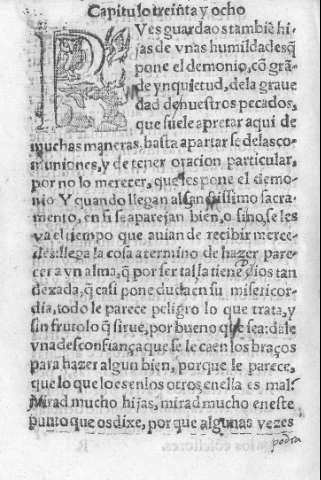 Capitulo treinta y ocho
PVes guardaos tambiẽ hi-
jas de vnas humildades q̃
pone el demonio, cõ grã-
de ynquietud, de la graue
dad de nuestros pecados,
que suele apretar aqui de
muchas maneras, hasta apartarse de las co-
muniones, y de tener oracion particular,
por no lo merecer, que les pone el demo-
nio Y quando llegan al santissimo sacra-
mento, en si se aparejan bien, o si no, se les
va el tiempo que auian de recibir merce-
des: llega la cosa a termino de hazer pare-
cer a vn alma, q̃ por ser tal la tiene Dios tan
dexada, q̃ casi pone duda en su misericor-
dia, todo le parece peligro lo que trata, y
sin fruto lo q̃ sirue, por bueno que sea: dale
vna desconfiança que se le caen los braços
para hazer algun bien, porque le parece,
que lo que lo es en los otros, en ella es mal:
Mirad mucho hijas, mirad mucho en este
punto que os dixe, porque algunas vezes
podra